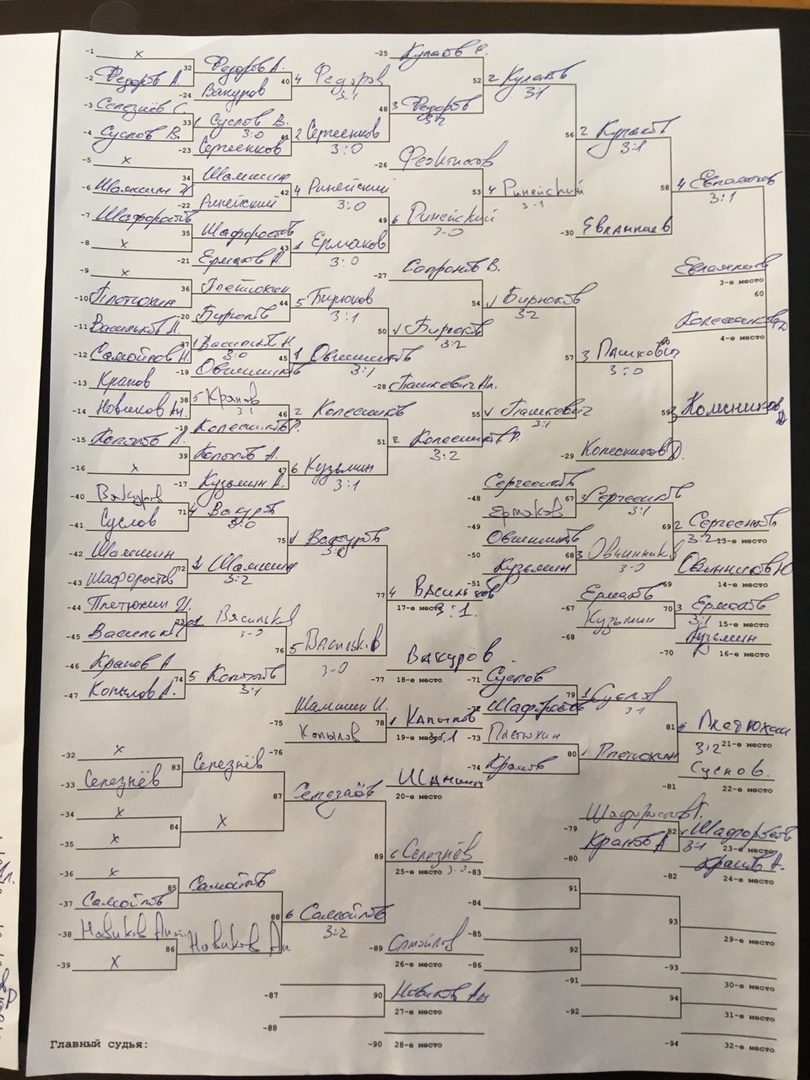 -1 x
-2 Федоров А.
32 Федоров А.
-24 Вакуров
40 4 Федоров
3:1
-3 Селезнёв С.
-4 Суслов В.
33 1 Суслов В.
3:0
-23 Сергеенков
41 2 Сергеенков
3:0
-5 x
-6 Шамшин И
34 Шамшин
-22 Ринейский
42 4 Ринейский
3:0
-7 Шафоростов
-8 x
35 Шафоростов
-21 Ермаков А
43 Ермаков
3:0
-9 x
-10 Плетюхин
36 Плетюхин
-20 Бирюков
44 5 Бирюков
3:1
-11 Васильков Н.
-12 Самойлов Н.
37 1 Васильков Н
3:0
-19 Овчинников
45 1 Овчинников
3:1
-13 Крапов
-14 Новиков Ан.
38 5 Крапов
3:1
Колесников Р.
46 2 Колесников
-15 Копылов А.
-16 x
39 Копылов А.
-17 Кузьмин А.
47 6 Кузьмин
3:1
-25 Кулаков С.
48 3 Федоров
3:2
52 2 Кулаков
3:1
-26 Феоктистов
49 6 Ринейский
3-0
53 4 Ринейский
3-1
56 2 Кулаков
3:1
-30 Евлампиев
58 4 Евлампиев
3:1
-27 Сапронов В.
50 1 Бирюков
3:2
54 1 Бирюков
3:2
-28 Пашкевич Ил.
51 2 Колесников Р
3:2
55 1 Пашкевич
3:1
57 3 Пашкович
3:0
-29 Колесников Д.
59 3 Колесников Д
60 Евлампиев
3-е место
Колесников Д
4-е место
-40 Вакуров
-41 Суслов
71 4 Вакуров
3:0
-42 Шамшин
-43 Шафоростов
72 1 Шамшин
3:2
75 1 Вакуров
-44 Плетюхин И.
-45 Васильков
73 Васильков
-46 Крапов А
-47 Копылов А.
74 5 Копылов
3:1
76 5 Васильков
3-0
77 4 Васильков
17-е место 3:1
-77 Вакуров
18-е место
-75 Шамшин И.
-76 Копылов
78 1 Копылов
19-е место 3:1
Шамшин
20-е место
-48 Сергеенков
-49 Ермаков
67 3 Сергеенков
3:1
-50 Овчинников
-51 Кузьмин
68 3 Овчинников
3-0
69 2 Сергеенков
3:2 13-е место
-69 Овчинников Ю
14-е место
-67 Ермаков
-68 Кузьмин
70 3 Ермаков
3:1 15-е место
-70 Кузьмин
16-е место
-71 Суслов
-72 Шафоростов
79 1 Суслов
3:1
-73 Плетюхин
-74 Крапов
80 1 Плетюхин
81 6 Плетюхин
3:2 21-е место
-81 Суслов.
22-е место
-79 Шафоростов Г.
-80 Крапов А
82 Шафоростов
3:1 23-е место
-82 Крапов А.
24-е место
-32 x
-33 Селезнёв
83 Селезнёв
-34 x
-35 x
84 x
87 Селезнёв
-36 x
-37 Самойлов
85 Самойлов
-38 Новиков Ан.
-39 x
86 Новиков Ан
88 6 Самойлов
3:2
89 6 Селезнёв
25-е место
-89 Самойлов
26-е место
-87
-88
90 Новиков Ан
27-е место
-90 28-е место
-83
-84
91
-85
-86
92
93
29-е место
-93
30-е место
-91
-92
94
31-е место
-94 32-е место
Главный судья: